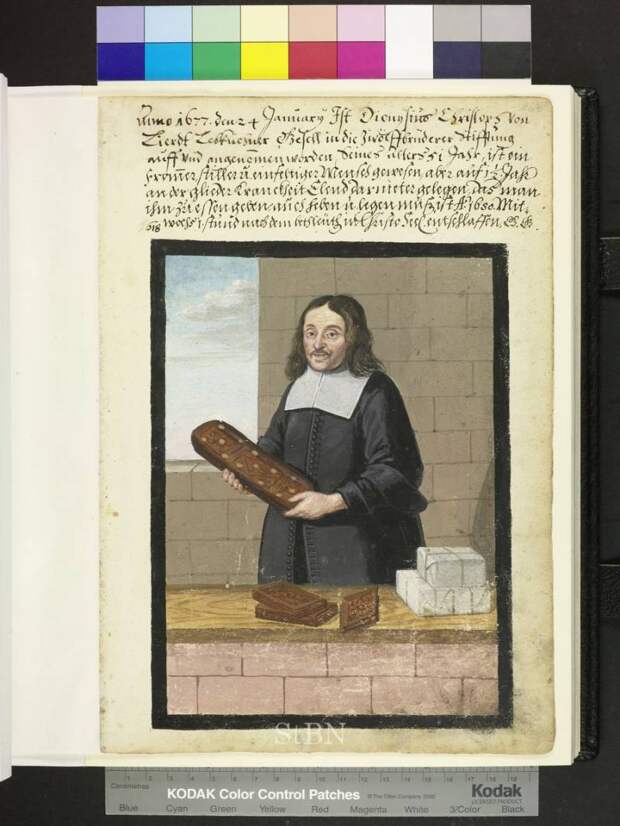 Anno 1677. den 24 January Ist Dionysius Christoph von
Lierdt Lebkuchner Gesell in die Zwölffbrüderer Stifftung
auff und angenomen worden, Seines alters 51 Jahr, ist ein
fromer stiller u. einfeltiger Mensch gewesen, aber auf 1½ Jahr
an der glieder Kranckheit Elend darnieder gelegen, das man
ihm zu essen geben, auch heben u. legen mußt ist A° 1680. Mit-
woch 1 stund nach dem in Christo Seel. entschlaffen.
StBN
Centimetres
1 2 3 4 5 6 7 8 9 10 11 12 13 14 15 16 17 18 19
KODAK Color Control Patches
© The Tiffen Company, 2000
Kodak
LICENSED PRODUCT
Blue Cyan Green Yellow Red Magenta White 3/Color Black